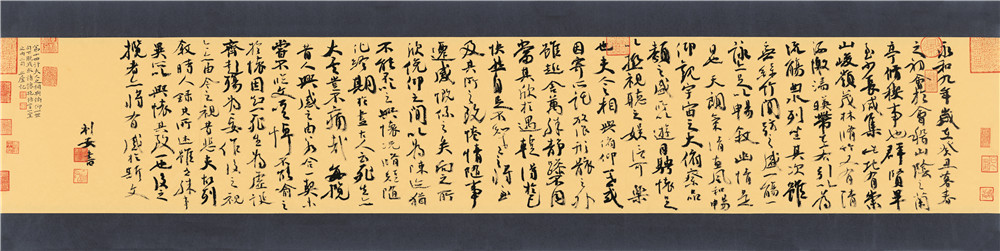 永和九年歲在癸丑暮春
之初會於會稽山陰之蘭
亭脩稧事也群賢畢
至少長咸集此地有崇
山峻領茂林脩竹又有清
流激湍暎帶左右引以為
流觴曲水列坐其次雖
無絲竹管弦之盛一觴一
詠亦足以暢敘幽情是
日也天朗氣清惠風和暢
仰觀宇宙之大俯察品
類之盛所以遊目騁懷足
以極視聽之娛信可樂
也夫人之相與俯仰一世或
因寄所託放浪形骸之外
雖趣舍萬殊靜躁不同
當其欣於所遇暫得於己
快然自足不知老之將至
及其所之既惓情隨事
遷感慨係之矣向之所
欣俛仰之間以為陳迹猶
不能不以之興懷況脩短隨
化終期於盡古人云死生亦
大矣豈不痛哉每攬
昔人興感之由若合一契未
嘗不臨文嗟悼不能喻之
於懷固知一死生為虛誕
齊彭殤為妄作後之視
今亦由今之視昔悲夫故列
敘時人錄其所述雖世殊事
異所以興懷其致一也後之
攬者亦將有感於斯文